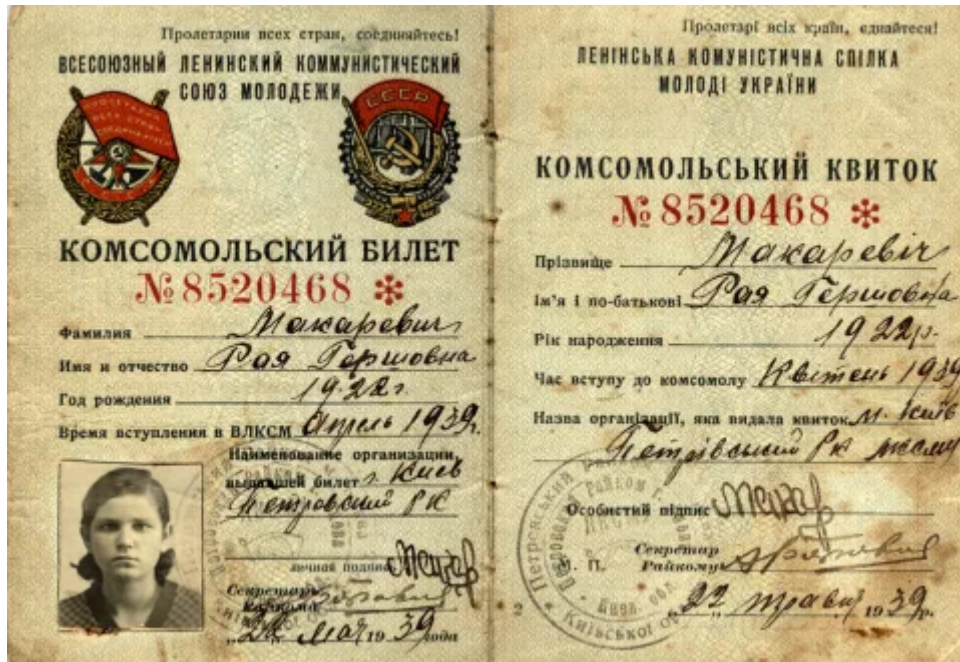 Пролетарии всех стран, соединяйтесь!
ВСЕСОЮЗНЫЙ ЛЕНИНСКИЙ КОММУНИСТИЧЕСКИЙ
СОЮЗ МОЛОДЕЖИ
СССР
КОМСОМОЛЬСКИЙ БИЛЕТ
№ 8520468 *
Фамилия Макаревич
Имя и отчество Рая Гершовна
Год рождения 1922 г.
Время вступления в ВЛКСМ Апрель 1939 г.
Наименование организации,
выдавшей билет г. Киев
Петровский РК
личная подпись
Секретарь
Райкома
"22" Мая 1939 года
Пролетарі всіх країн, єднайтеся!
ЛЕНІНСЬКА КОМУНІСТИЧНА СПІЛКА
МОЛОДІ УКРАЇНИ
КОМСОМОЛЬСЬКИЙ КВИТОК
№ 8520468 *
Прізвище Макаревіч
Ім'я і по-батькові Рая Гершовна
Рік народження 1922 р.
Час вступу до комсомолу Квітень 1939
Назва організації, яка видала квиток м. Київ
Петрівський РК ЛКСМУ
Особистий підпис
Секретар
М. П. Райкому
"22" травня 1939 р.
2